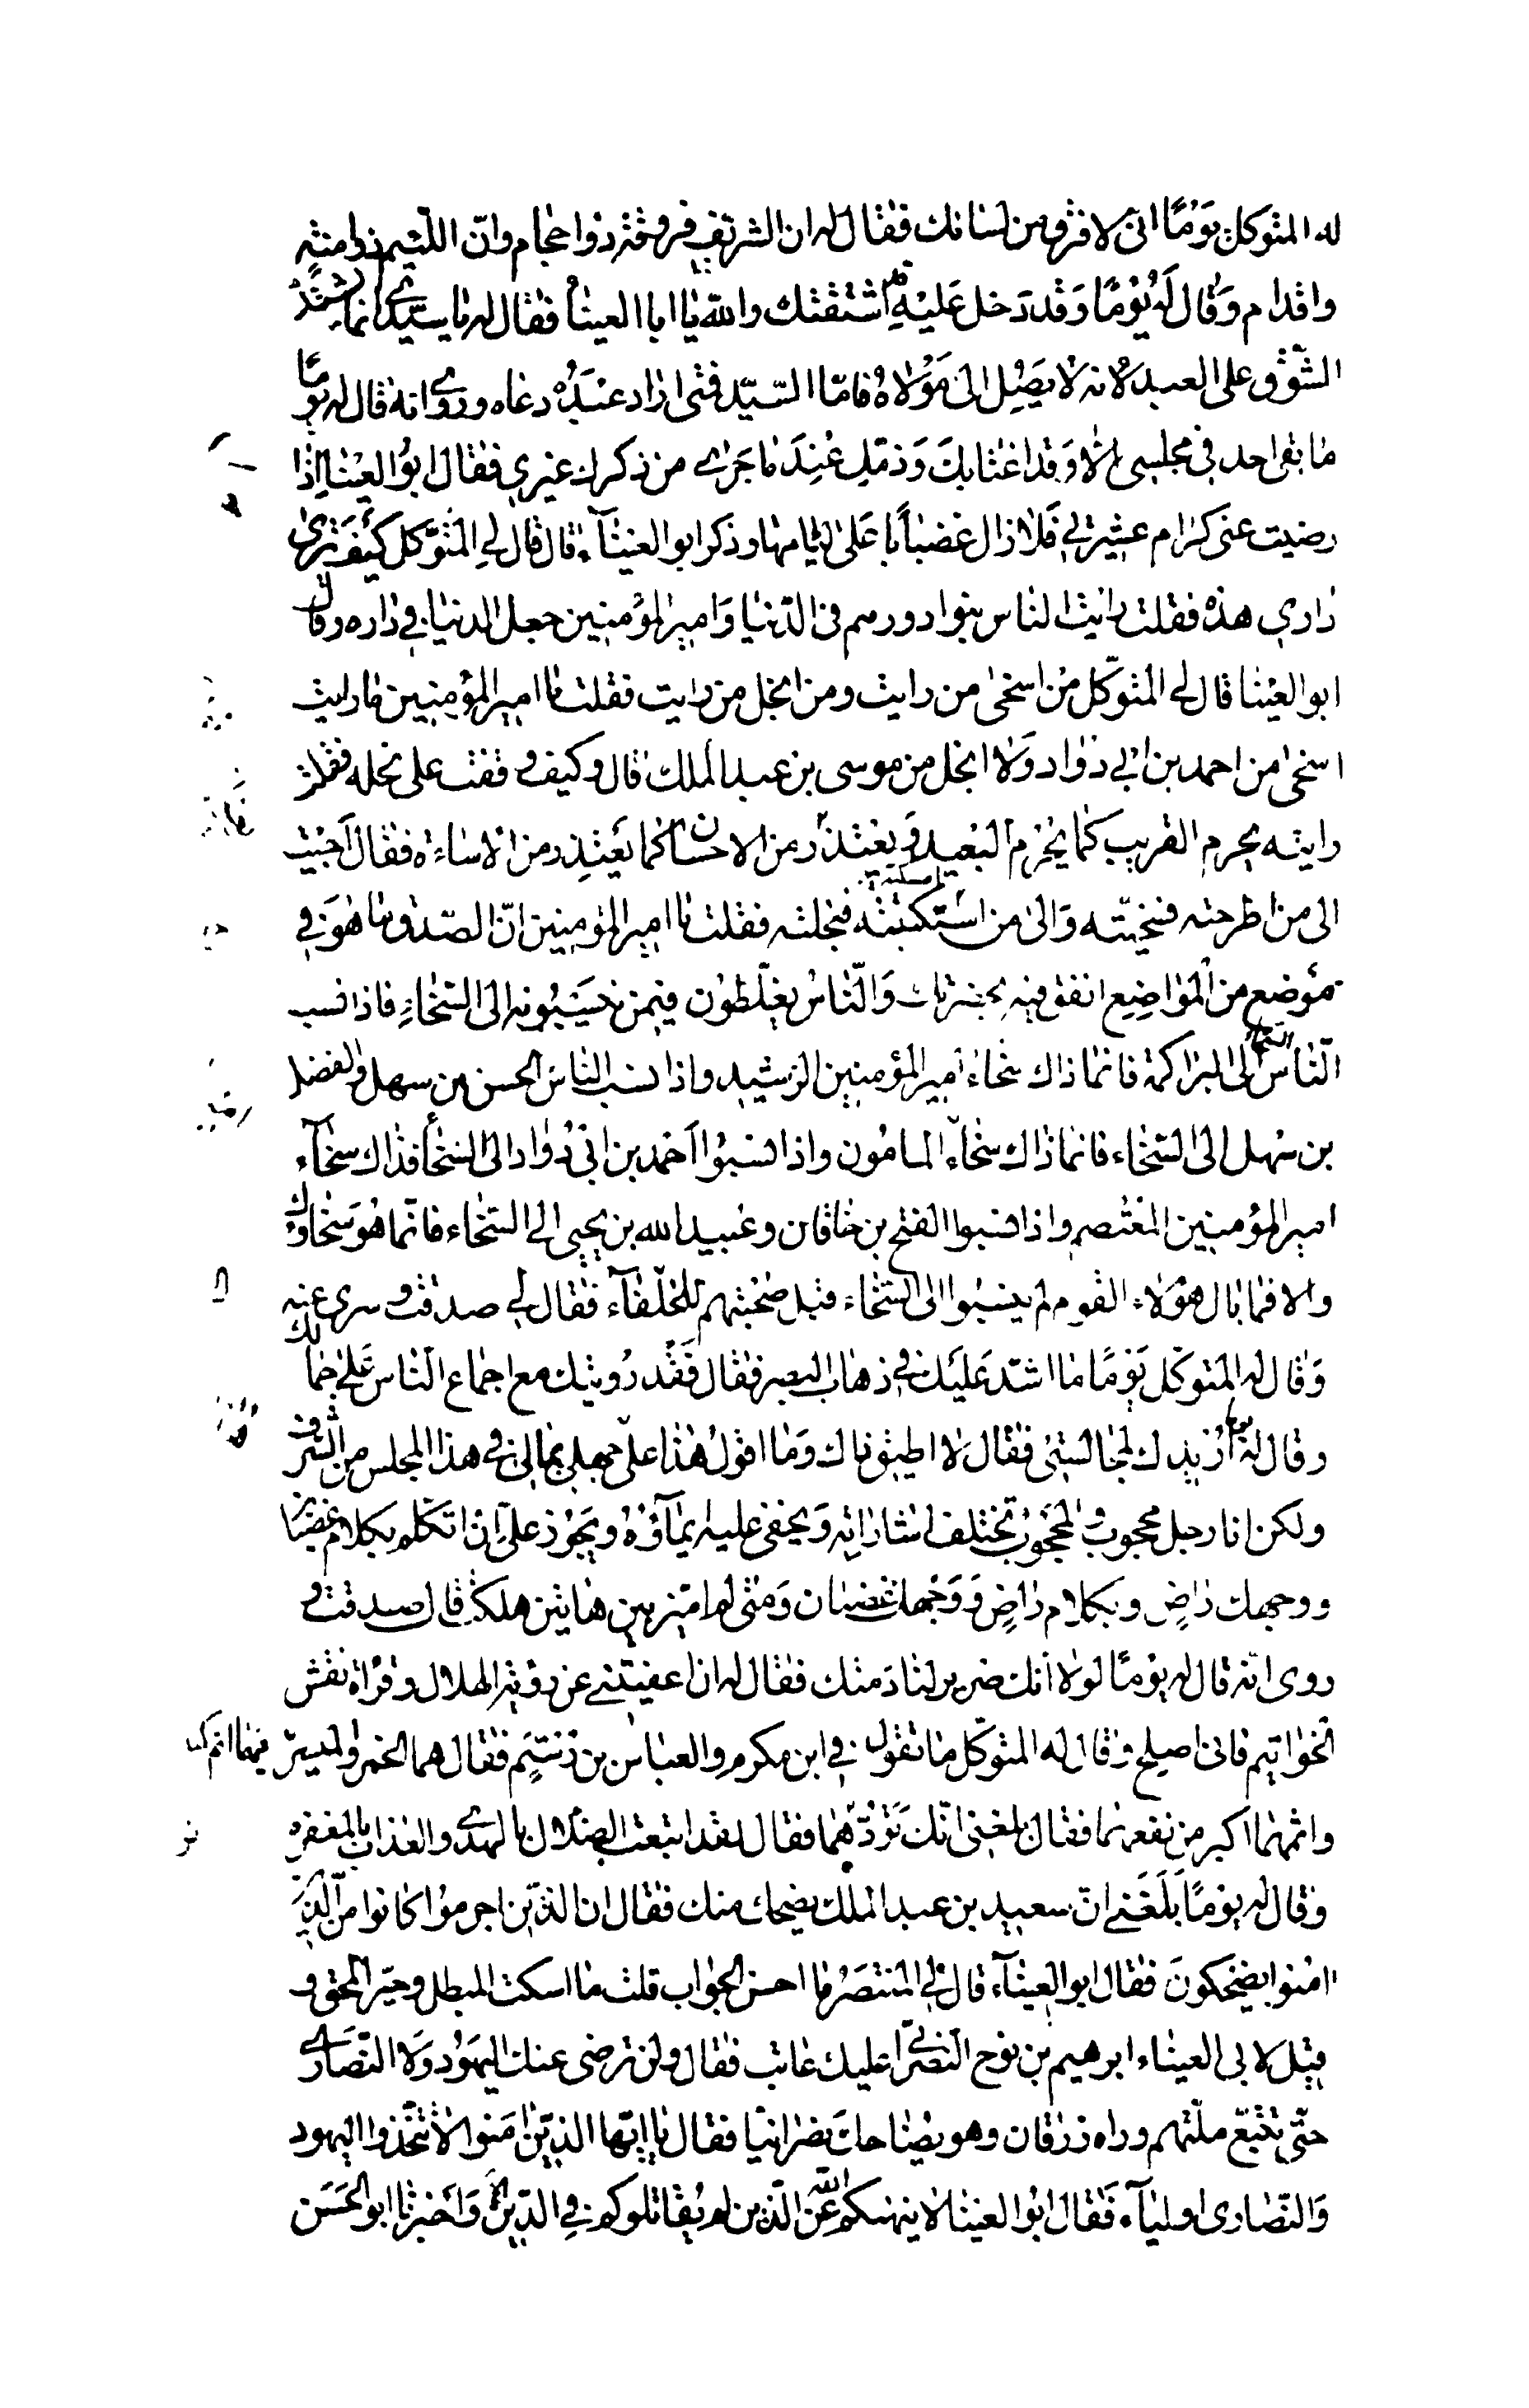 له المتوكل يَوْمًا انى لافرق من لسانك فقال له ان الشريف فروقة ذوا حجام وان اللئيم ذوا منة
واقدام وَقال لَهُ يَوْمًا وَقد دَخل عَليْهِ اشتقتك والله يا ابا العيناء فقال له يا سيدي انما يشتد
الشّوق على العبد لانه لا يَصِل الى مَوْلاهُ فامّا السّيّد فمتى اراد عَبْدَهُ دعاه وروي انه قال له يومًا
ما بقى احد فى مجلسى الا وَقد اغتابك وَذمّك عِندَ ما جَرى من ذكرك غيري فقال ابوُ العيْنا اذا
رضيت عنى كرام عشيرتي فلا زال غضباناً عَلىّ لئامها وذكر ابو العيناء قال قال لي المتوكل كيف ترى
داري هذه فقلت رايت الناس بنوا دورهم فى الدّنيا وَامير المؤمنين جعل الدنيا في داره وقال
ابو العيْنا قال لى المتوكّل مَن اسخى من رايت ومن ابخل من رايت فقلت يا امير المؤمنين ما رايت
اسخى من احمد بن ابي دؤاد وَلا ابخل من موسى بن عبد الملك قال وكيف وقفت على بخله فقلت
رايته يحرم القريب كما يَحْرِم البَعيد وَيعتذر من الاحسان كما يَعْتذِر من الاساءة فقال اجئت
الى من اطرحته فسخيّته وَالى من اسْتكتبته فبخلته فقلت يا امير المؤمنين انّ الصّدق ما هُوَ في
موْضع من المَواضِع انفق منه بحضرتك وَالنّاسُ يغلّطون فيمن ينسبُونه الى السّخاءِ فاذا نسب
النّاس السخاء الى البرامكة فانما ذاك سَخاءُ امير المؤمنين الرّشيد واذا نسب الناسَ الحسن بن سهل والفضل
بن سَهل الى السّخاء فانما ذاك سخاءُ المامُون واذا نسبوُا احْمد بن ابى دُؤاد الى السّخاء فذاك سخاء
امير المؤمنين المعْتصم واذا نسبوا الفتح بن خاقان وعُبيد الله بن يحيى الى السخاء فانّما هُوَ سَخاؤك
والا فما بال هؤلاء القوم لم ينسبُوا الى السّخاء قبل صُحْبتهم للخلفَاء فقال لي صدقت وسرى عنه
وَقال له المتوكّل يَوْمًا ما اشدّ عَليك في ذهاب البصر فقال فَقْد رُويتك مع اجماع النّاس عَلى جمالك
وقال له يومًا اُريدك لمجالستى فقال لا اطيق ذاك وَما اقولُ هذا جهلاً بما لى فى هذا المجلس من الشرف
ولكن انا رجل محجوب والمحجُوبُ تختلف اشارته وَيخفى عليه ايماؤه ويَجُوز علىّ ان اتكلم بكلام غضبان
ووجهك راضٍ وبكلام راضٍ وَوَجْهك غضبان وَمتى لم اميز بين هاتين هلكت قال صدقت و
روى انّه قال له يومًا لولا انك ضرير لنادمتك فقال له ان اعفيتنى عن رؤية الهلال وقراة نقش
الخواتيم فانى اصلح وقال له المتوكّل ما تقول فى ابن مكرم والعباس بن رُستم فقال هما الخمر والميسر فيهما اثم كبير
واثمهما اكبر من نفعهما فقال بلغنى انّك تَوَدُّهُما فقال لقد ابتعت الضلال بالهدى والعذاب بالمغفرة
وقال له يومًا بَلَغَنى انّ سعيد بن عبد الملك يضحك منك فقال ان الذين اجرموُا كانوا من الّذين
امنوا يضحكون فقال ابو العيناء قال لي المنتصرُ ما احسن الجواب قلت ما اسكت المبطل وحيّر المحق و
قيل لابى العيناء ابرهيم بن نوح النصراني عليك عاتب فقال ولن ترضى عنك اليهوُد وَلا النّصارى
حتّى تتّبع ملّتهم وراه زرقان وهو يُضاحك نصرانيّا فقال يا ايّها الذين امنوا لا تتّخذوا اليهود
وَالنّصارى اولياء فقال ابُو العينا لا ينهىكم الله عَن الّذين لم يُقاتلوكم في الدّين وَاخبرنا ابو الحَسَن